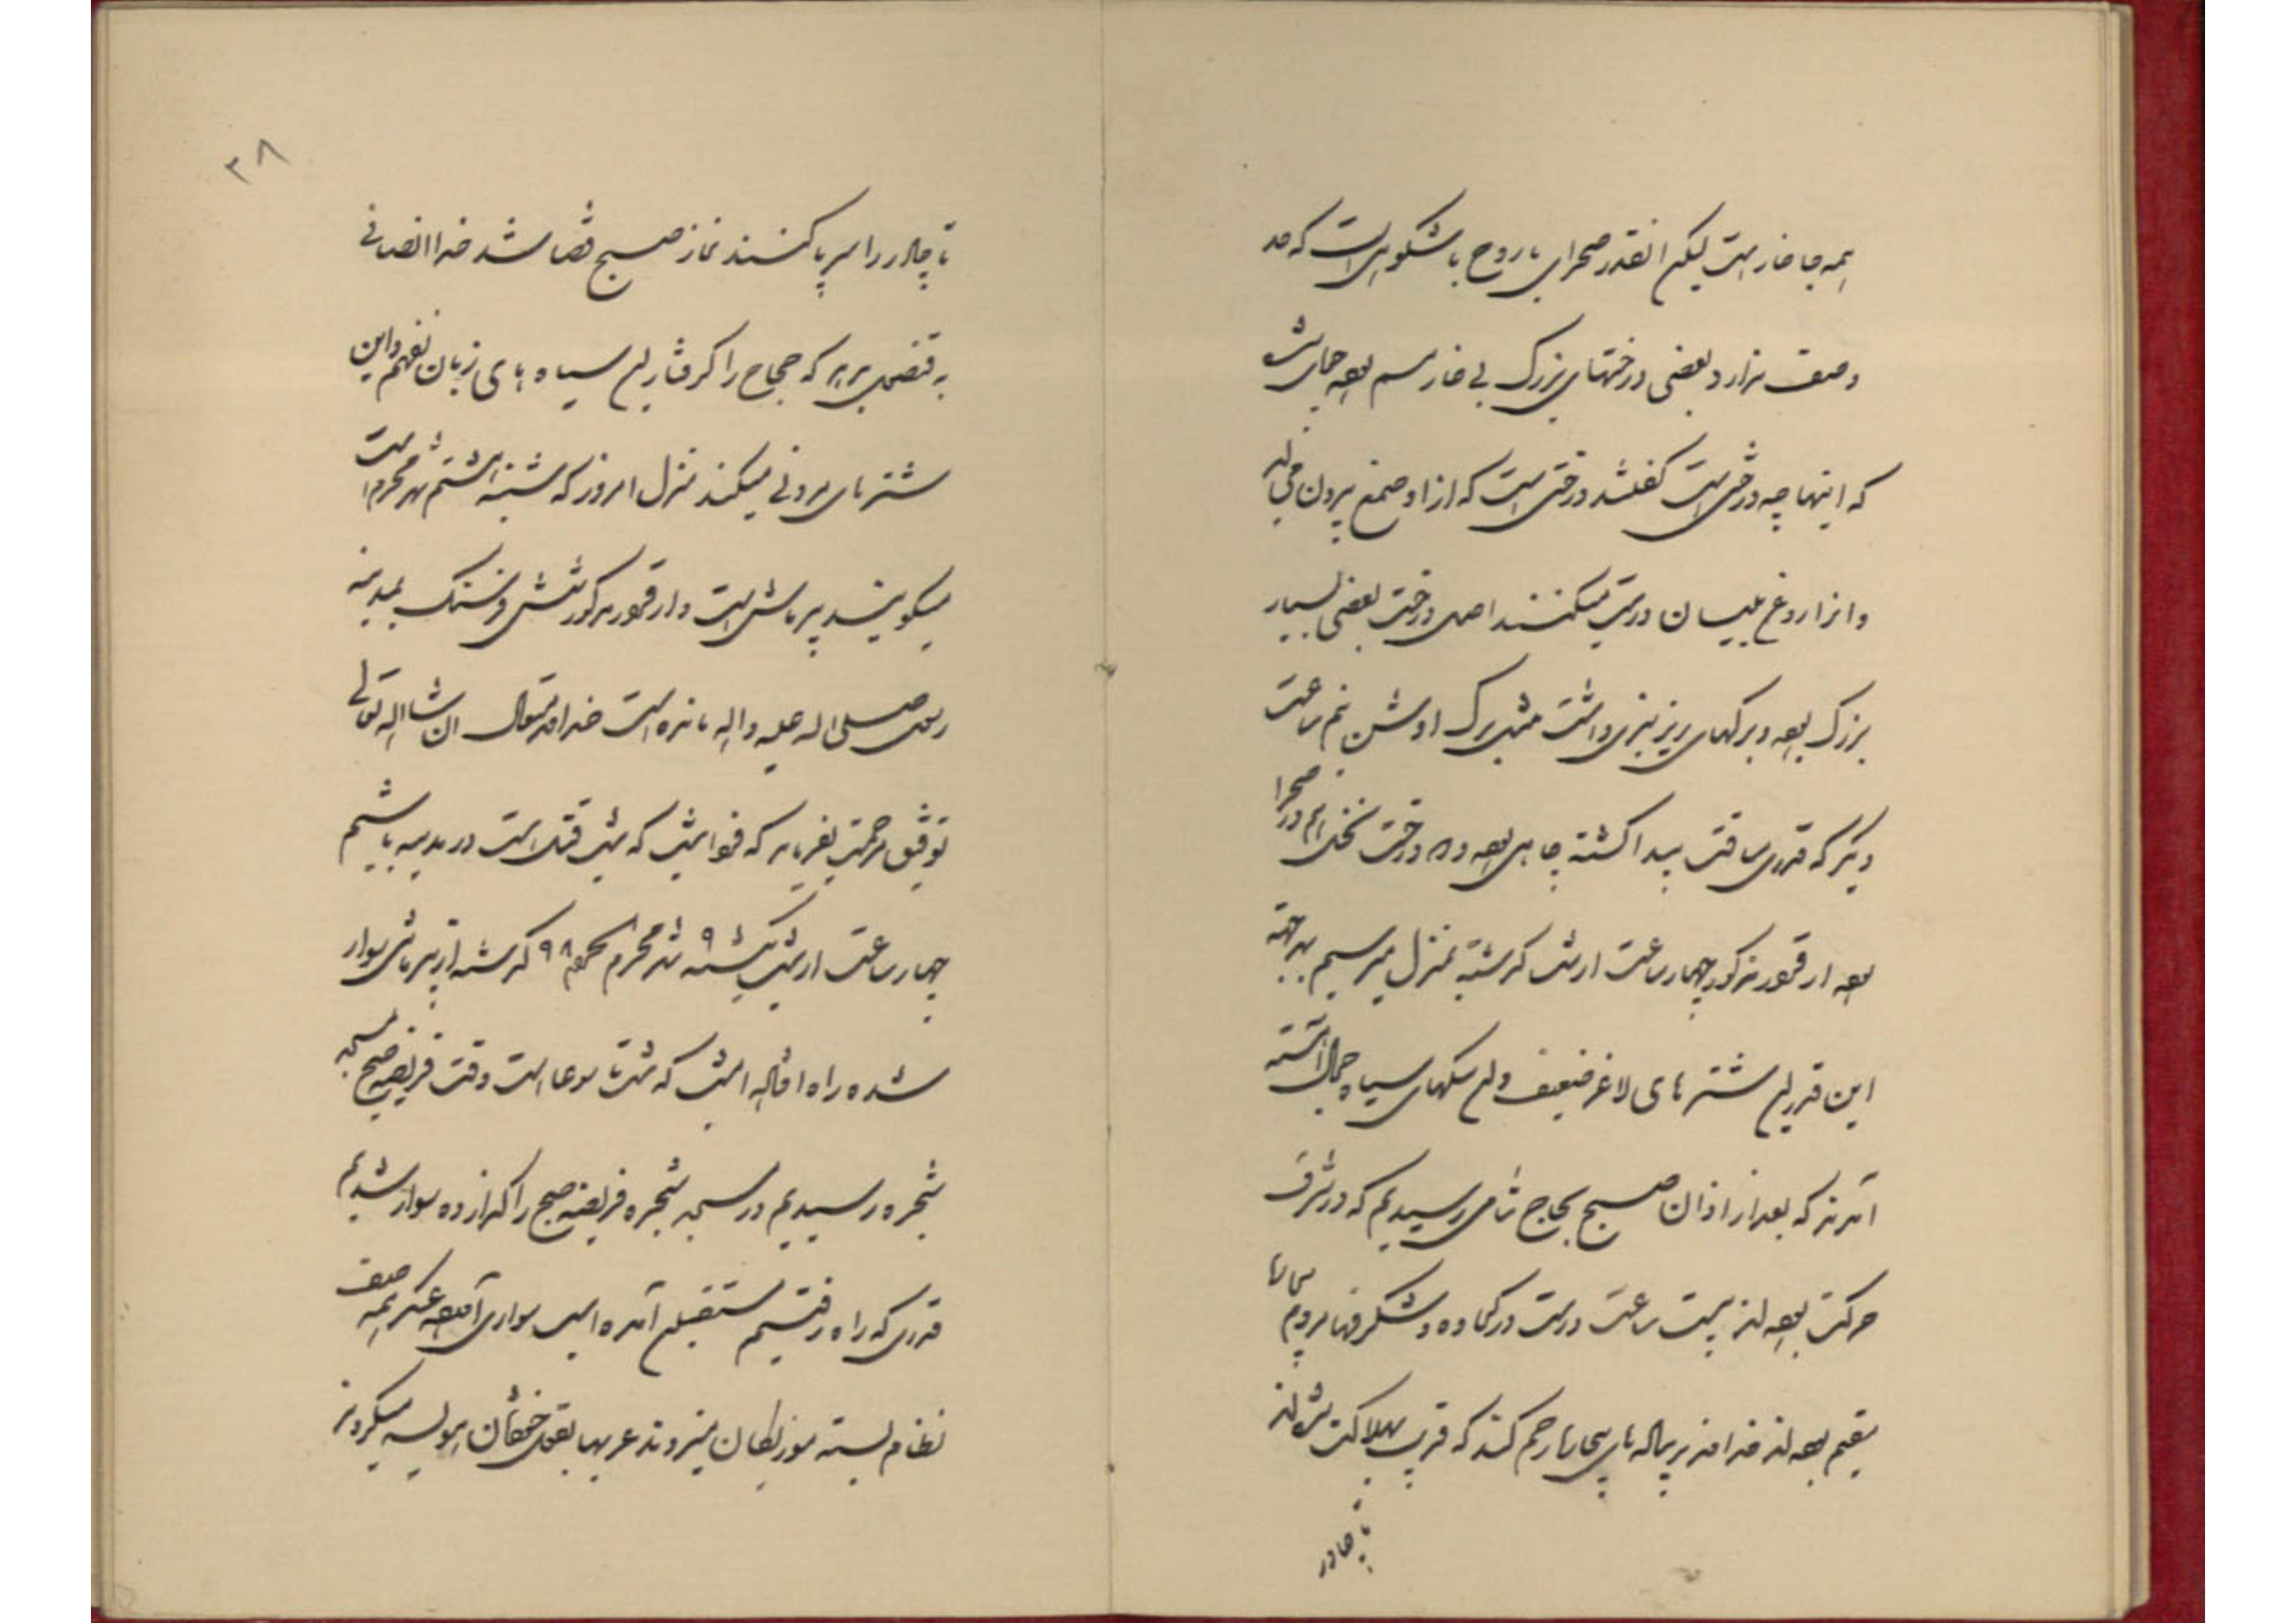 همه جا خار است لیکن انقدر صحرای با روح باشکوهی است که حد
وصف ندارد بعضی درختهای بزرگ بی خار سم بوده جمای
که اینها چه درختی است گفتند درختی است که از او صمغ بیرون می
و از او روغ بلیسان درست میکنند اصل درخت بعضی بسیار
بزرگ بوده و برگهای ریز سبزی داشت مثل برگ اوشن نیم ساعت
دیگر که قدری مسافت پیدا گشته چاهی بوده و درخت نخل هم در صحرا
بوده از قرار مذکور چهار ساعت از شب گذشته بمنزل میرسیم بهر جهة
این قدر این شترهای لاغر ضعیف و این سگهای سیاه جمال آهسته
آمدند که بعد از اذان صبح بحاج شامی رسیدیم که در شرف
حرکت بودند بیست ساعت درست در کجاوه و شگرفها مردم
مقیم بودند خداوند بر ناله های بیچارها رحم کند که قریب بهلاکت شدند
تا چادر
تا چادر را سر پا کنند نماز صبح قضا شد خدا انصافی
به قنصل بدهد که حجاج را گرفتار این سیاه های زبان نفهم و این
شترهای مردنی میکند منزل امروز که شنبه هشتم شهر محرم است
میگویند بیر ماشی است و از قرار مذکور شش فرسنگ بمدینه
رسول صلی اله علیه و اله مانده است خداوند متعال ان شااله تعالی
توفیق مرحمت بفرماید که فردا شب که شب قتل است در مدینه باشیم
چهار ساعت از شب یکشنبه ۹ شهر محرم الحرام ۹۸ گذشته از بیر ماشی سوار
شده راه افتاده امشب که شب تاسوعا است وقت فریضه صبح بمسجد
شجره رسیدیم در مسجد شجره فریضه صبح را گذارده سوار شدیم
قدری که راه رفتیم مستقبلین آمده اسب سواری آمده عسکر همه صف
نظام بسته موزیکان میزدند عربها بقول خودشان هوسه میکردند
۳۸